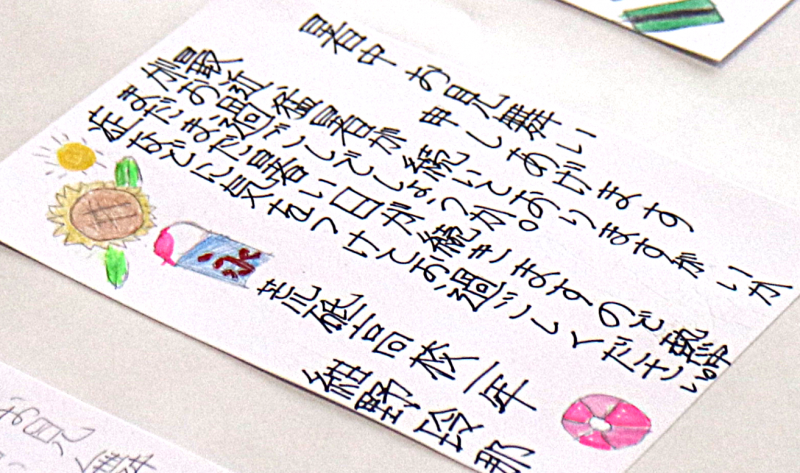 暑中お見舞い
申しあげます
最近、猛暑が続いておりますがいか
がお過ごしでしょうか。
まだまだ暑い日が続きますので熱中
症などに気をつけてお過ごしください。
荒砥高校一年
紺野
氷
お見舞